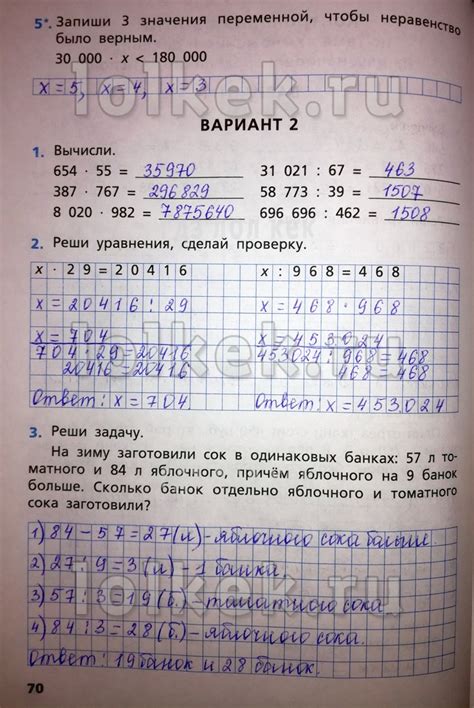 5*. Запиши 3 значения переменной, чтобы неравенство
было верным.
30 000 · x < 180 000
x = 5, x = 4, x = 3
ВАРИАНТ 2
1. Вычисли.
654 · 55 = 35970 31 021 : 67 = 463
387 · 767 = 296829 58 773 : 39 = 1507
8 020 · 982 = 7875640 696 696 : 462 = 1508
2. Реши уравнения, сделай проверку.
x · 29 = 20416 x : 968 = 468
x = 20416 : 29 x = 468 · 968
x = 704 x = 453024
704 · 29 = 20416 453024 : 968 = 468
20416 = 20416 468 = 468
Ответ: x = 704 Ответ: x = 453024
3. Реши задачу.
На зиму заготовили сок в одинаковых банках: 57 л то-
матного и 84 л яблочного, причём яблочного на 9 банок
больше. Сколько банок отдельно яблочного и томатного
сока заготовили?
1) 84 - 57 = 27 (л) - яблочного сока больше.
2) 27 : 9 = 3 (л) - 1 банка.
3) 57 : 3 = 19 (б.) - томатного сока.
4) 84 : 3 = 28 (б.) - яблочного сока.
Ответ: 19 банок и 28 банок.
70
lolkek.ru